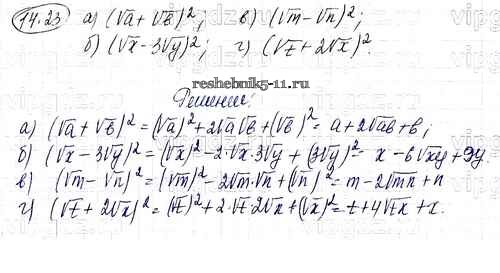 14.23 а) (√a + √b)²; в) (√m - √n)²;
б) (√x - 3√y)²; г) (√z + 2√x)².
reshebnik5-11.ru
Решение:
а) (√a + √b)² = (√a)² + 2√a√b + (√b)² = a + 2√ab + b;
б) (√x - 3√y)² = (√x)² - 2·√x·3√y + (3√y)² = x - 6√xy + 9y.
в) (√m - √n)² = (√m)² - 2√m·√n + (√n)² = m - 2√mn + n
г) (√z + 2√x)² = (√z)² + 2·√z·2√x + (√x)² = z + 4√zx + x.